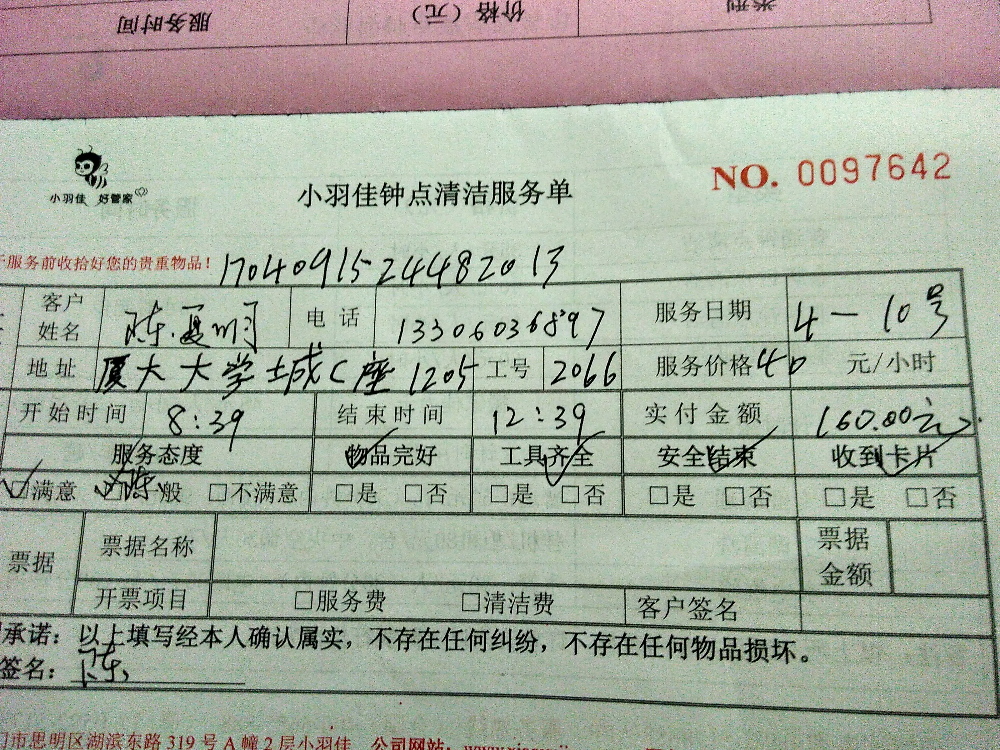 服务时间 价格（元） 类别
小羽佳 好管家
小羽佳钟点清洁服务单
NO. 0097642
服务前收拾好您的贵重物品！
17040915244820 13
客户姓名 陈 电话 13306036897 服务日期 4-10号
地址 厦大大学城C座1205 工号 2066 服务价格 40 元/小时
开始时间 8:39 结束时间 12:39 实付金额 160.00元
服务态度 物品完好 工具齐全 安全结束 收到卡片
□满意 □陈般 □不满意 □是 □否 □是 □否 □是 □否 □是 □否
票据 票据名称 票据金额
开票项目 □服务费 □清洁费 客户签名
承诺：以上填写经本人确认属实，不存在任何纠纷，不存在任何物品损坏。
签名：陈
门市思明区湖滨东路319号A幢2层小羽佳 公司网站：